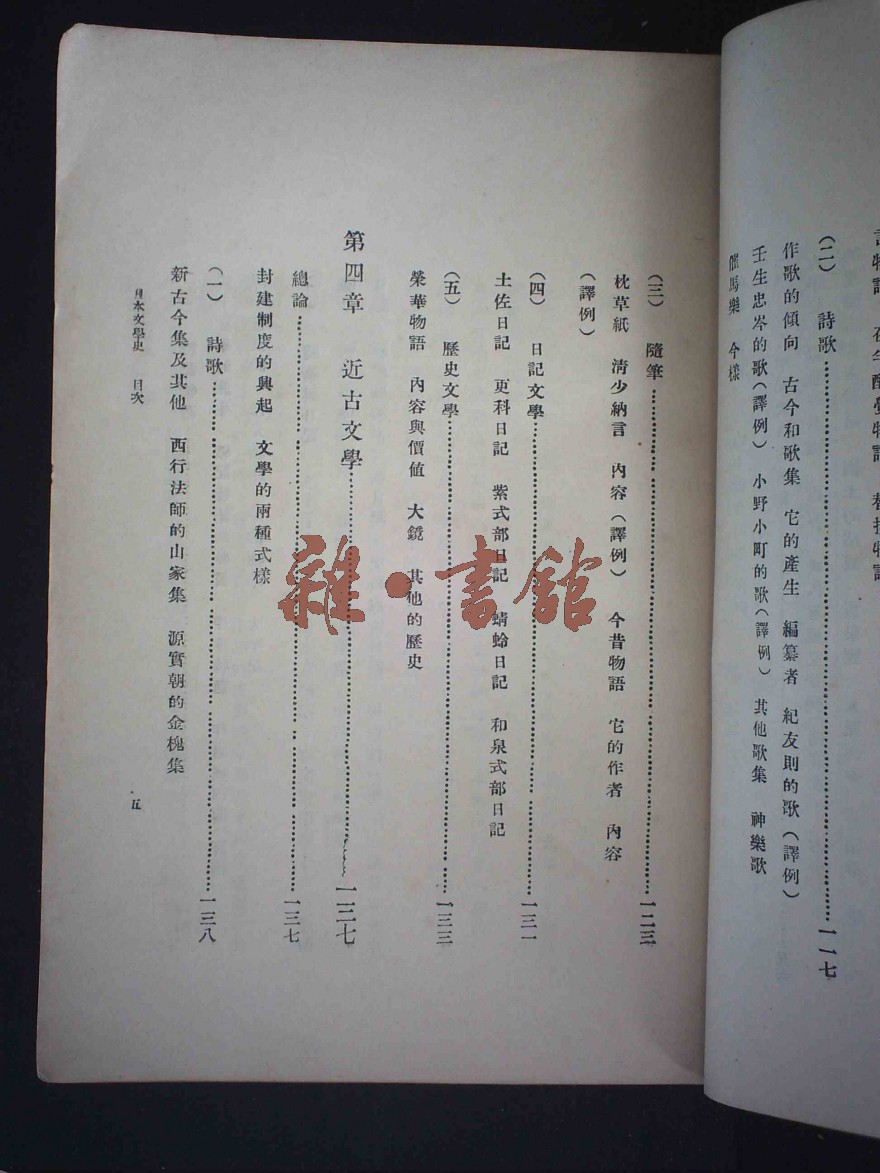 （二）　詩歌……一一七
作歌的傾向　古今和歌集　它的產生　編纂者　紀友則的歌（譯例）
壬生忠岑的歌（譯例）　小野小町的歌（譯例）　其他歌集　神樂歌
催馬樂　今樣
（三）　隨筆……一二三
枕草紙　清少納言　內容（譯例）　今昔物語　它的作者　內容
（譯例）
（四）　日記文學……一三一
土佐日記　更科日記　紫式部日記　蜻蛉日記　和泉式部日記
（五）　歷史文學……一三三
榮華物語　內容與價値　大鏡　其他的歷史
第四章　近古文學……一三七
總論……一三七
封建制度的興起　文學的兩種式樣
（一）　詩歌……一三八
新古今集及其他　西行法師的山家集　源實朝的金槐集
日本文學史　目次
五
雜·書館